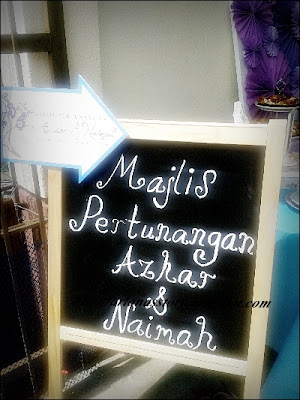 Majlis
Pertunangan
Azhar
&
Naimah